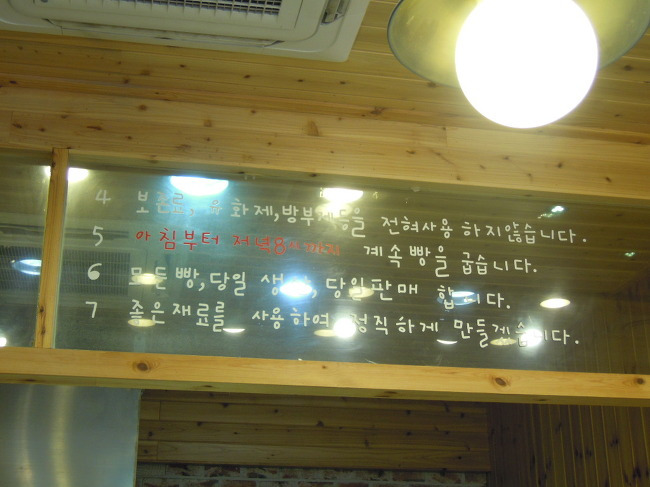 4 보존료, 유화제, 방부제등을 전혀사용 하지않습니다.
5 아침부터 저녁8시까지 계속빵을 굽습니다.
6 모든빵, 당일 생산, 당일판매 합니다.
7 좋은재료를 사용하여 정직하게 만들겠습니다.